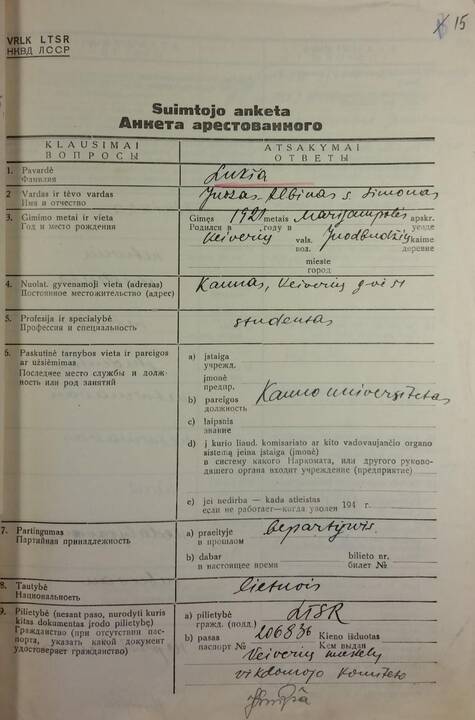 15
VRLK LTSR
НКВД ЛССР
Suimtojo anketa
Анкета арестованного
KLAUSIMAI
ВОПРОСЫ
ATSAKYMAI
ОТВЕТЫ
1. Pavardė
Фамилия
Lukša
2 Vardas ir tėvo vardas
Имя и отчество
Juozas-Albinas s. Simonas
3. Gimimo metai ir vieta
Год и место рождения
Gimęs 1921 metais Marijampolės apskr.
Родился в году в уезде
Veiverių vals. Juodbūdžių kaime
вол. деревне
mieste
город
4. Nuolat. gyvenamoji vieta (adresas)
Постоянное местожительство (адрес)
Kaunas, Veiverių g-vė 51
5. Profesija ir specialybė
Профессия и специальность
studentas
6. Paskutinė tarnybos vieta ir pareigos
ar užsiėmimas
Последнее место службы и долж-
ность или род занятий
a) įstaiga
учрежд.
įmonė
предпр.
Kauno universitetas
b) pareigos
должность
c) laipsnis
звание
d) į kurio liaud. komisariato ar kito vadovaujančio organo
sistemą įeina įstaiga (įmonė)
в систему какого Наркомата, или другого руково-
дящего органа входит учреждение (предприятие)
e) jei nedirba — kada atleistas
если не работает—когда уволен 194 г.
7. Partingumas
Партийная принадлежность
a) praeityje bepartyvis
в прошлом
b) dabar bilieto nr.
в настоящее время билет №
8. Tautybė
Национальность
lietuvis
9. Pilietybė (nesant paso, nurodyti kuris
kitas dokumentas įrodo pilietybę)
Гражданство (при отсутствии пас-
порта, указать какой документ
удостоверяет гражданство)
a) pilietybė LTSR
гражд. (подд.)
b) pasas 206836 Kieno išduotas
паспорт № Кем выдан
Veiverių
vykdomojo komiteto